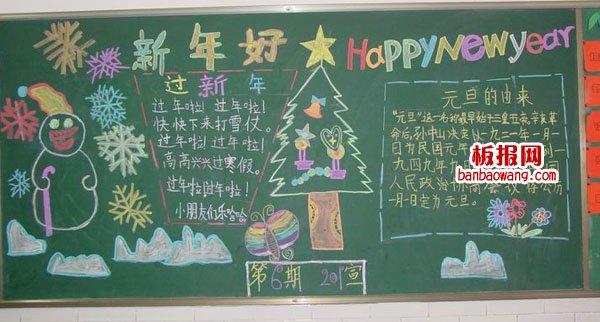 新年好
HAPPY New year
过新年
过年啦！过年啦！
快快下来打雪仗。
过年啦！过年啦！
高高兴兴过寒假。
过年啦过年啦！
小朋友们乐哈哈。
元旦的由来
"元旦"这一名称最早始于三皇五帝，辛亥革
命后，孙中山决定以一九一二年一月一日
为民国元年
一九四九年九
人民政治协商会议
月一日定为元旦。
板报网
banbaowang.com
第6期 201宣